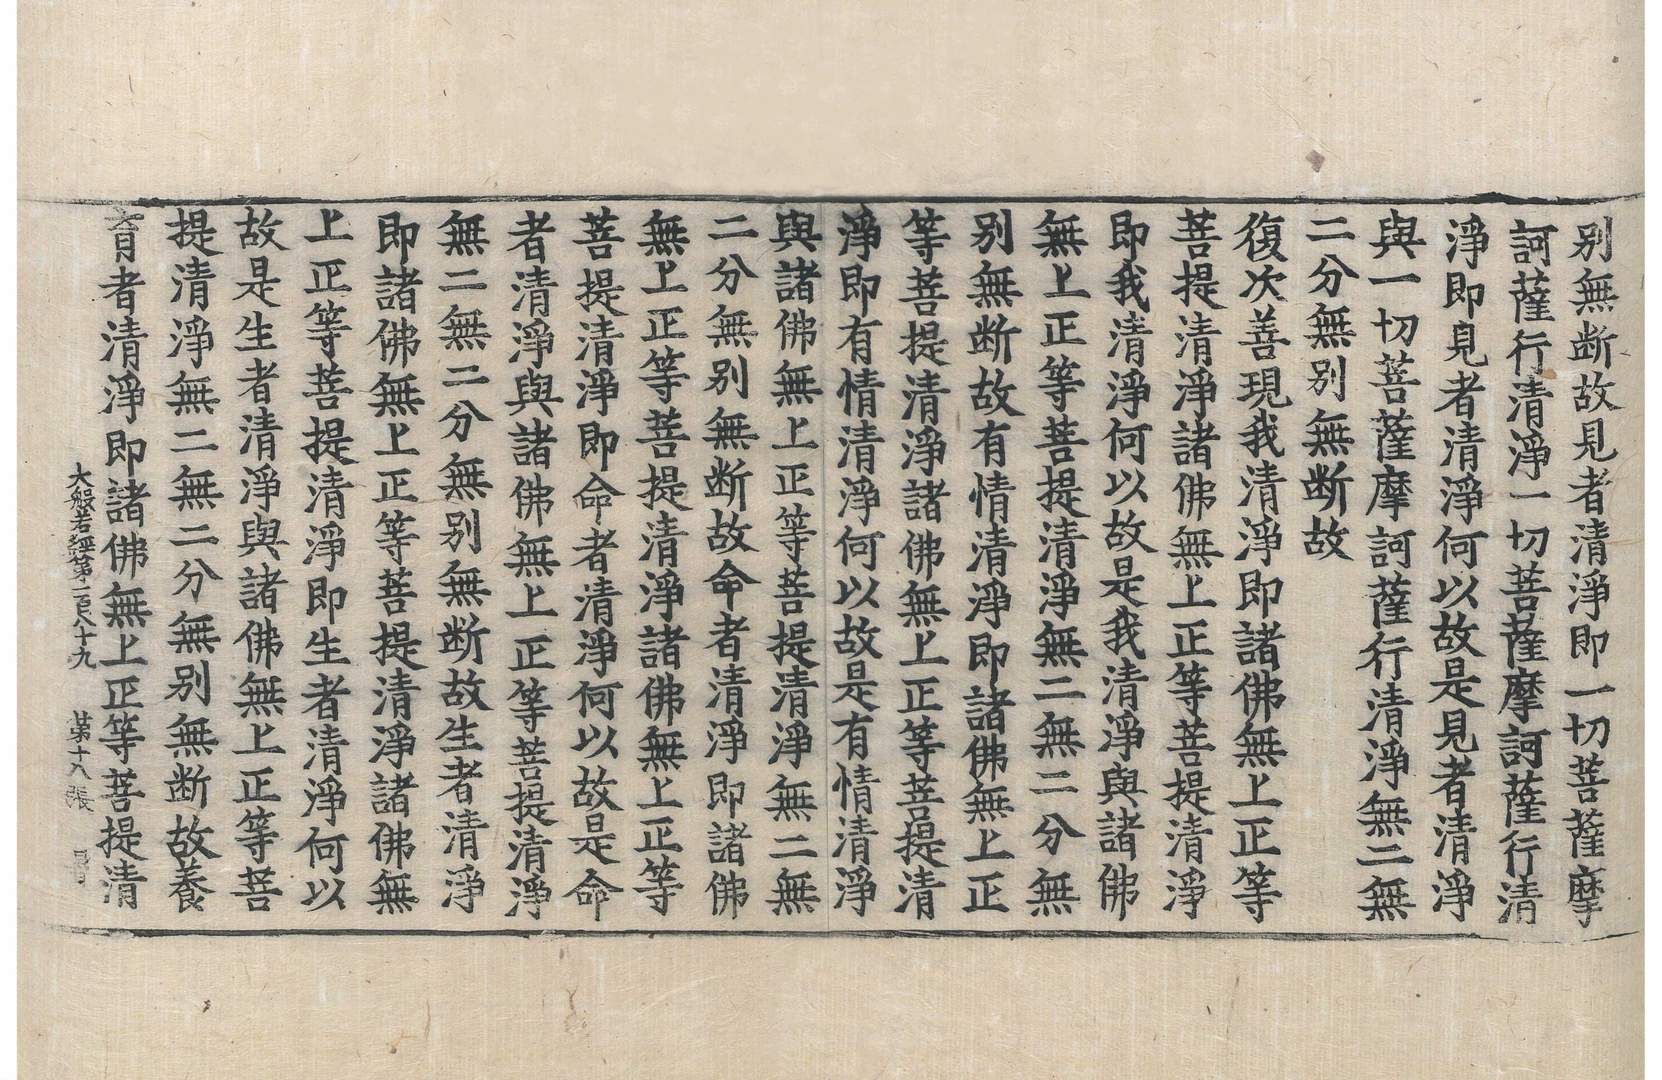 别無断故見者清淨即一切菩薩摩
訶薩行清淨一切菩薩摩訶薩行清
淨即見者清淨何以故是見者清淨
與一切菩薩摩訶薩行清淨無二無
二分無别無断故
復次善現我清淨即諸佛無上正等
菩提清淨諸佛無上正等菩提清淨
即我清淨何以故是我清淨與諸佛
無上正等菩提清淨無二無二分無
别無断故有情清淨即諸佛無上正
等菩提清淨諸佛無上正等菩提清
淨即有情清淨何以故是有情清淨
與諸佛無上正等菩提清淨無二無
二分無别無断故命者清淨即諸佛
無上正等菩提清淨諸佛無上正等
菩提清淨即命者清淨何以故是命
者清淨與諸佛無上正等菩提清淨
無二無二分無别無断故生者清淨
即諸佛無上正等菩提清淨諸佛無
上正等菩提清淨即生者清淨何以
故是生者清淨與諸佛無上正等菩
提清淨無二無二分無别無断故養
育者清淨即諸佛無上正等菩提清
大般若經第一百八十九 第十八張